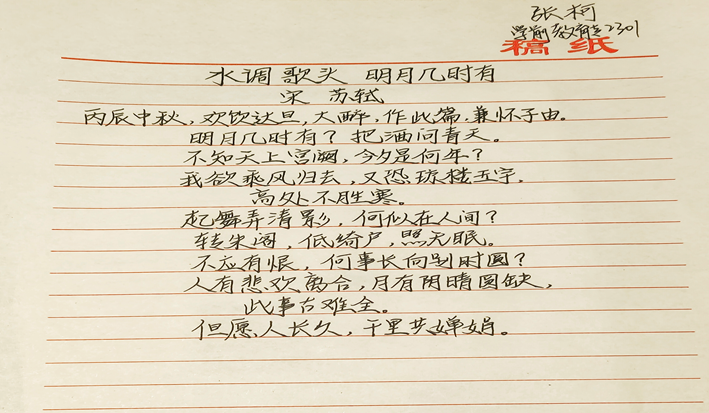 张柯
学前教育专2301
稿纸
水调歌头 明月几时有
宋 苏轼
丙辰中秋,欢饮达旦,大醉,作此篇,兼怀子由。
明月几时有?把酒问青天。
不知天上宫阙,今夕是何年?
我欲乘风归去,又恐琼楼玉宇,
高处不胜寒。
起舞弄清影,何似在人间?
转朱阁,低绮户,照无眠。
不应有恨,何事长向别时圆?
人有悲欢离合,月有阴晴圆缺,
此事古难全。
但愿人长久,千里共婵娟。